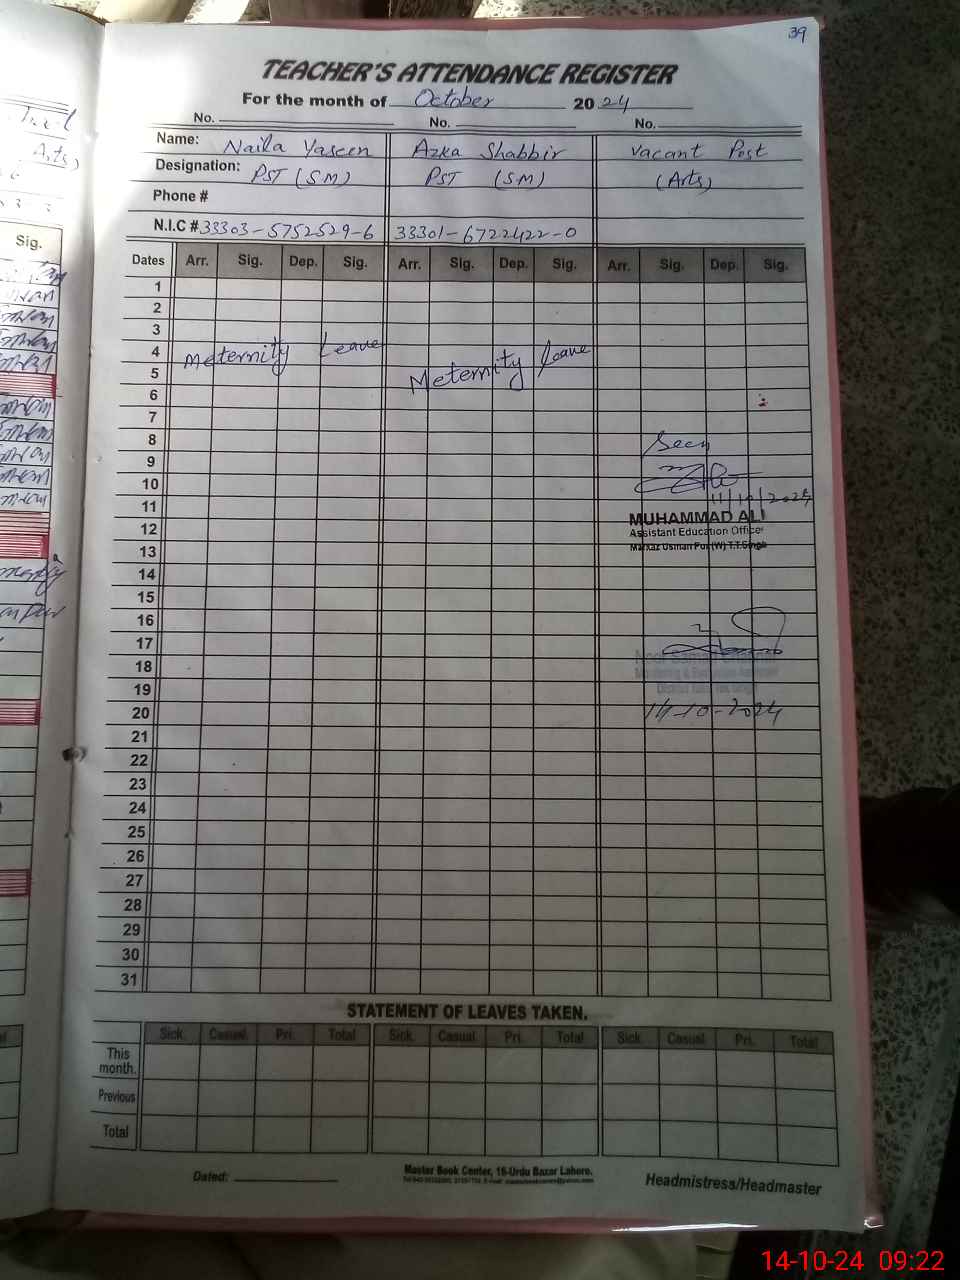 39
TEACHER'S ATTENDANCE REGISTER
For the month of October 2024
No. No. No.
Name: Naila Yaseen Azka Shabbir Vacant Post
Designation: PST (SM) PST (SM) (Arts)
Phone #
N.I.C # 33303-5752529-6 33301-6722422-0
Dates Arr. Sig. Dep. Sig. Arr. Sig. Dep. Sig. Arr. Sig. Dep. Sig.
1
2
3
4
Meternity Leave
5
Meternity Leave
6
7
8
Seen
9
10
11/10/2024
11
MUHAMMAD ALI
12
Assistant Education Officer
13
Markaz Usman Pur (W) T.T.Singh
14
15
16
17
18
Monitoring & Evaluation Assistant
19
District Toba Tek Singh
20
14-10-2024
21
22
23
24
25
26
27
28
29
30
31
STATEMENT OF LEAVES TAKEN.
Sick. Casual. Pri. Total Sick. Casual. Pri. Total Sick. Casual. Pri. Total
This month.
Previous
Total
Dated:
Master Book Center, 16-Urdu Bazar Lahore.
Headmistress/Headmaster
Arts)
Sig.
14-10-24 09:22